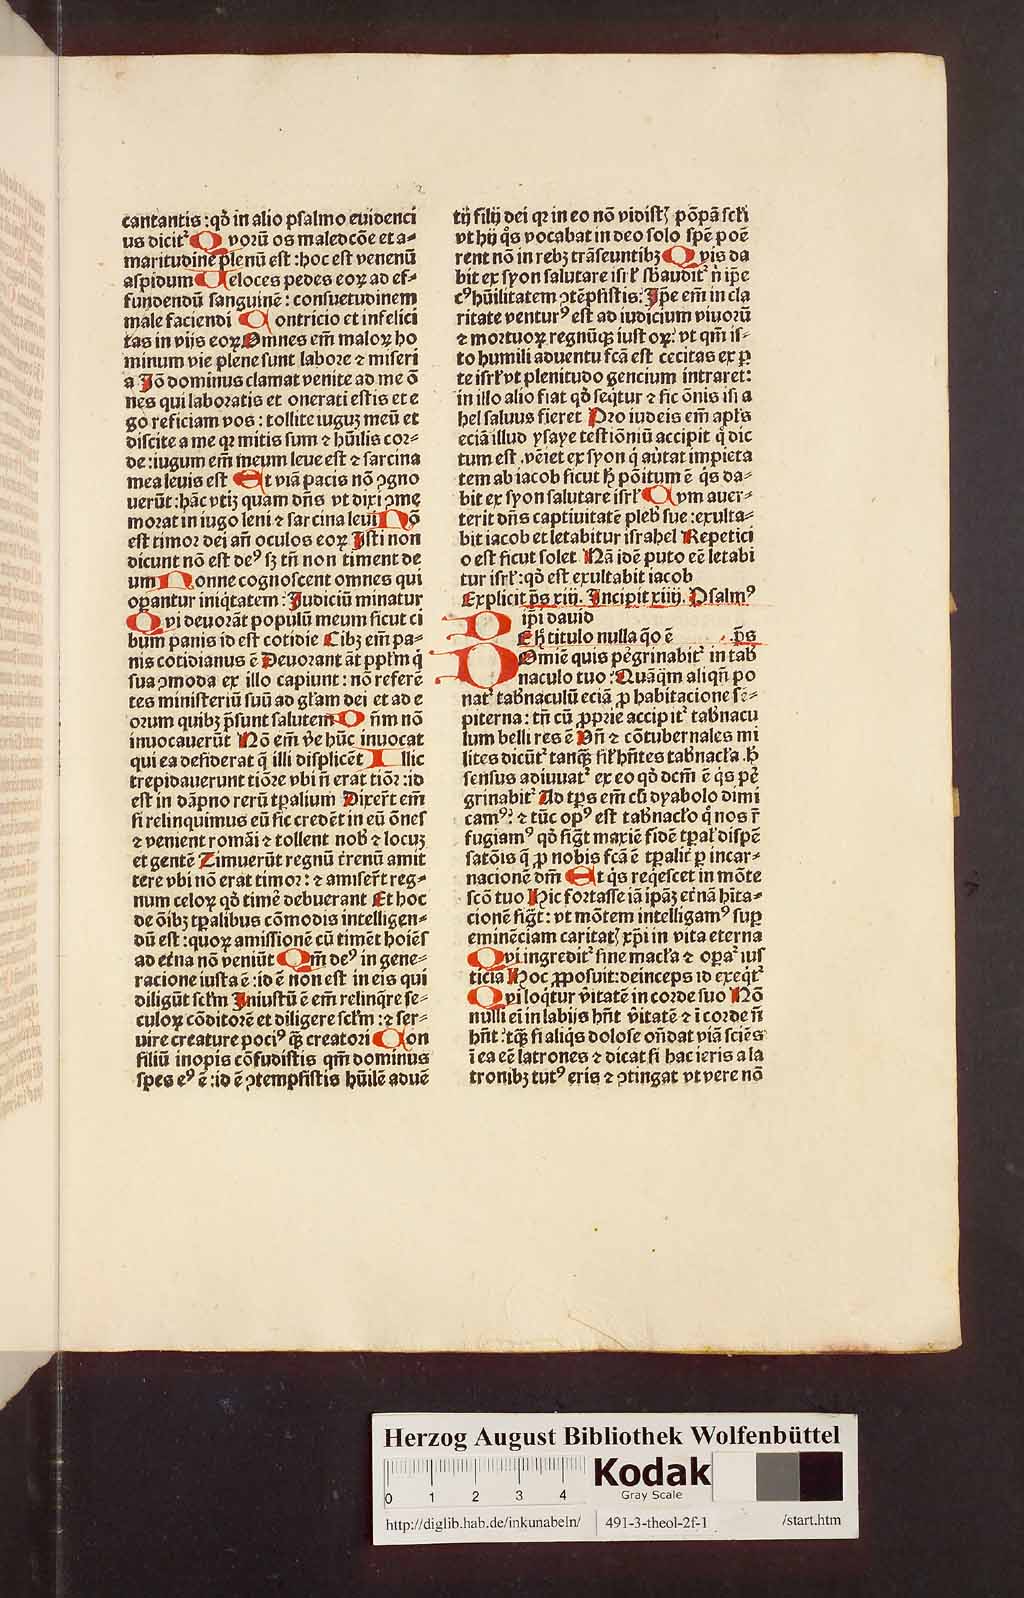 cantantis : qđ in alio psalmo euidenci
us dicit᷑ Quorū os maledcōe et a-
maritudine plenū est : hoc est venenū
aspidum Veloces pedes eoꝝ ad ef-
fundendū sanguinē : consuetudinem
male faciendi Contricio et infelici
tas in vijs eoꝝ Omnes em̄ maloꝝ ho
minum vie plene sunt labore ⁊ miseri
a Jō dominus clamat venite ad me ō
nes qui laboratis et onerati estis et e
go reficiam vos : tollite iuguꝫ meū et
discite a me qꝛ mitis sum ⁊ hūilis cor-
de : iugum em̄ meum leue est ⁊ sarcina
mea leuis est Et viā pacis nō ꝯgno
uerūt : hāc vtiꝫ quam dn̄s vt dixi ꝯme
morat in iugo leni ⁊ sarcina leui Nō
est timor dei an̄ oculos eoꝝ Isti non
dicunt nō est deꝰ sꝫ tn̄ non timent de
um Nonne cognoscent omnes qui
opantur iniq̄tatem : Judiciū minatur
Qui deuorāt populū meum sicut ci
bum panis id est cotidie Cibꝫ em̄ pa-
nis cotidianus ē Deuorant āt pplm̄ q̇
sua ꝯmoda ex illo capiunt : nō referē
tes ministeriū suū ad glam̄ dei et ad e
orum quibꝫ p̄sunt salutem Dn̄m nō
inuocauerūt Nō em̄ v̄e hūc inuocat
qui ea desiderat q̄ illi displicēt Illic
trepidauerunt tiōre vbi n̄ erat tiōr : id
est in dāpno rerū tꝑalium Dixer̄t em̄
si relinquimus eū sic credēt in eū ōnes
⁊ venient romāi ⁊ tollent nob̄ ⁊ locuꝫ
et gentē Timuerūt regnū t̄renū amit
tere vbi nō erat timor : ⁊ amiser̄t reg-
num celoꝝ qđ timē debuerant Et hoc
de ōibꝫ tꝑalibus cōmodis intelligen-
dū est : quoꝝ amissionē cū timēt hoīes
ad et̄na nō veniūt Qm̄ deꝰ in gene-
racione iusta ē : id ē non est in eis qui
diligūt sclm̄ Iniustū ē em̄ relinq̄re se-
culoꝝ cōditorē et diligere sclm̄ : ⁊ ser-
uire creature pociꝰ qꝫ creatori Con
siliū inopis cōfudistis qm̄ dominus
spes eꝰ ē : id ē ꝯtempsistis hūilē aduē
tū filij dei qꝛ in eo nō vidistꝫ pōpā scl̄i
vt hij q̊s vocabat in deo solo spē poē
rent nō in rebꝫ trāseuntibꝫ Quis da
bit ex syon salutare isrl̄ sb̄audit᷑ n̄ ip̄e
cꝰ hūilitatem ꝯtēpsistis : Jp̄e em̄ in cla
ritate venturꝰ est ad iudicium viuorū
⁊ mortuoꝝ regnūqꝫ iustoꝝ : vt qm̄ is-
to humili aduentu fc̄a est cecitas ex ꝑ
te isrl̄ vt plenitudo gencium intraret :
in illo alio fiat qđ seq̄tur ⁊ sic ōnis isra
hel saluus fieret Pro iudeis em̄ apl̄s
eciā illud ysaye testiōniū accipit q̄ dic
tum est . vēiet ex syon q̇ aūtat impieta
tem ab iacob sicut hꝫ pōitum ē q̇s da-
bit ex syon salutare isrl̄ Cum auer-
terit dn̄s captiuitatē pleb̄ sue : exulta-
bit iacob et letabitur israhel Repetici
o est sicut solet Nā idē puto eē letabi
tur isrl̄ : qđ est exultabit iacob
Explicit p̄s xiij. Incipit xiiij. Psalmꝰ
ip̄i dauid
De hꝫ titulo nulla q̄o ē .p̄s
Domīe quis pe̓grinabit᷑ in tab̄
naculo tuo : Quāq̄m aliqn̄ po
nat᷑ tab̄naculū eciā ꝓ habitacione sē-
piterna : tn̄ cū ꝓprie accipit᷑ tab̄nacu
lum belli res ē Vn̄ ⁊ cōtubernales mi
lites dicūt᷑ tanqꝫ sil̄ hn̄tes tab̄nacl̄a . H̄
sensus adiuuat᷑ ex eo qđ dcm̄ ē q̇s pe̓
grinabit᷑ Ad tp̄s em̄ cū dyabolo dimi
camꝰ : ⁊ tūc opꝰ est tab̄nacl̄o q̊ nos r̄
fugiamꝰ qđ sig̓t maxiē fidē tꝑal̄ dispē
satōis q̄ ꝓ nobis fc̄a ē tꝑalit᷑ ꝑ incar-
nacionē dn̄i Et q̇s reqͥescet in mōte
scō tuo Hic fortasse iā ip̄aꝫ et̄nā hīta-
cionē sig̓t : vt mōtem intelligamꝰ suꝑ
eminēciam caritatꝫ xp̄i in vita eterna
Qui ingredit᷑ sine macl̄a ⁊ oꝑat᷑ ius
ticiā Hoc ꝓposuit : deinceps id exeq̄t᷑
Qui loq̄tur v̄itatē in corde suo Nō
nulli ei̅ in labijs hn̄t v̄itatē ⁊ ī corde n̄
hn̄t : tqꝫ si aliq̇s dolose on̄dat viā sciēs
ī ea eē latrones ⁊ dicat si hac ieris a la
tronibꝫ tutꝰ eris ⁊ ꝯtingat vt vere nō
Herzog August Bibliothek Wolfenbüttel
0 1 2 3 4
Kodak
Gray Scale
http://diglib.hab.de/inkunabeln/ 491-3-theol-2f-1 /start.htm